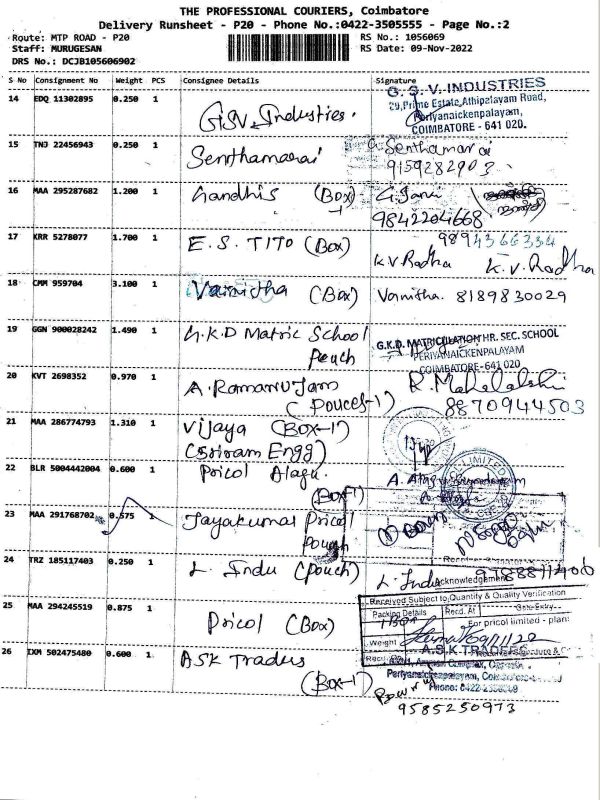 THE PROFESSIONAL COURIERS, Coimbatore
Delivery Runsheet - P20 - Phone No.:0422-3505555 - Page No.:2
Route: MTP ROAD - P20 RS No.: 1056069
Staff: MURUGESAN RS Date: 09-Nov-2022
DRS No.: DCJB105606902
S No Consignment No Weight PCS Consignee Details Signature
14 EDQ 11302895 0.250 1 G.S.V. Industries. G. S. V. INDUSTRIES
29,Prime Estate,Athipalayam Road,
Periyanaickenpalayam,
COIMBATORE - 641 020.
15 TNJ 22456943 0.250 1 Senthamarai Senthamarai
9159282903
16 MAA 295287682 1.200 1 Gandhis (Box)
9842204668
17 KRR 5278077 1.700 1 E.S. TITO (Box) 9894366334
K.V Radha K.V. Radha
18 CMM 959704 3.100 1 Vanitha (Box) Vanitha. 8189830029
19 GGN 900028242 1.490 1 G.K.D Matric School
Pouch
G.K.D. MATRICULATION HR. SEC. SCHOOL
PERIYANAICKENPALAYAM
COIMBATORE-641 020
20 KVT 2698352 0.970 1 A. Ramanujam R. Mahalakshi
(Pouces-1) 8870944503
21 MAA 286774793 1.310 1 Vijaya (BOX-1)
(Sriram Engg)
22 BLR 5004442004 0.600 1 Pricol Alagu
(Box-1)
23 MAA 291768702 0.575 1 Jayakumar Pricol
Pouch
24 TRZ 185117403 0.250 1 L. Indu (Pouch) L. Indu
Acknowledgement
Received Subject to Quantity & Quality Verification
Packing Details Recd. At Gate Entry
25 MAA 294245519 0.875 1 Pricol (Box) For pricol limited - plant
Weight 09/11/22
26 IXM 502475480 0.600 1 ASK Traders A.S.K TRADERS
(Box-1) Periyanaickenpalayam,
Phone: 0422-
9585250973